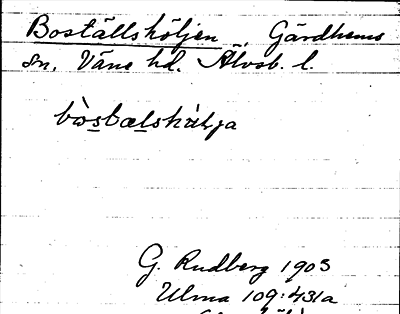 Boställshöljen, Gärdhems
sn. Väne hd. Älvsb. l.
G. Rudberg 1903
Ulma 109:431a